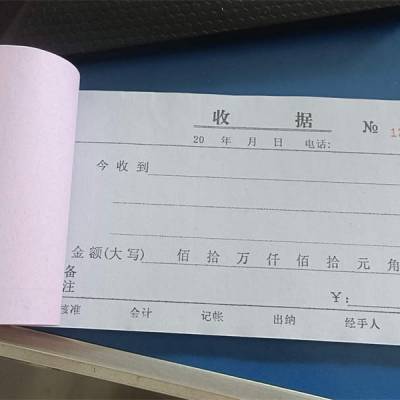 收 据 № 1
20 年 月 日 电话:
今收到
金额(大写) 佰 拾 万 仟 佰 拾 元 角
备注 ¥:
核准 会计 记帐 出纳 经手人